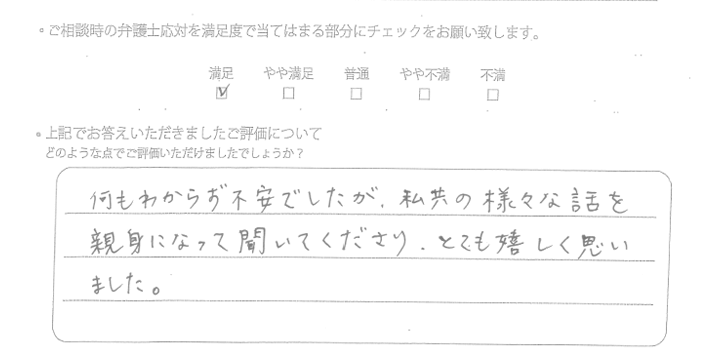 ご相談時の弁護士応対を満足度で当てはまる部分にチェックをお願い致します。
満足 やや満足 普通 やや不満 不満
☑ □ □ □ □
上記でお答えいただきましたご評価について
どのような点でご評価いただけましたでしょうか？
何もわからず不安でしたが、私共の様々な話を
親身になって聞いてくださり、とても嬉しく思い
ました。